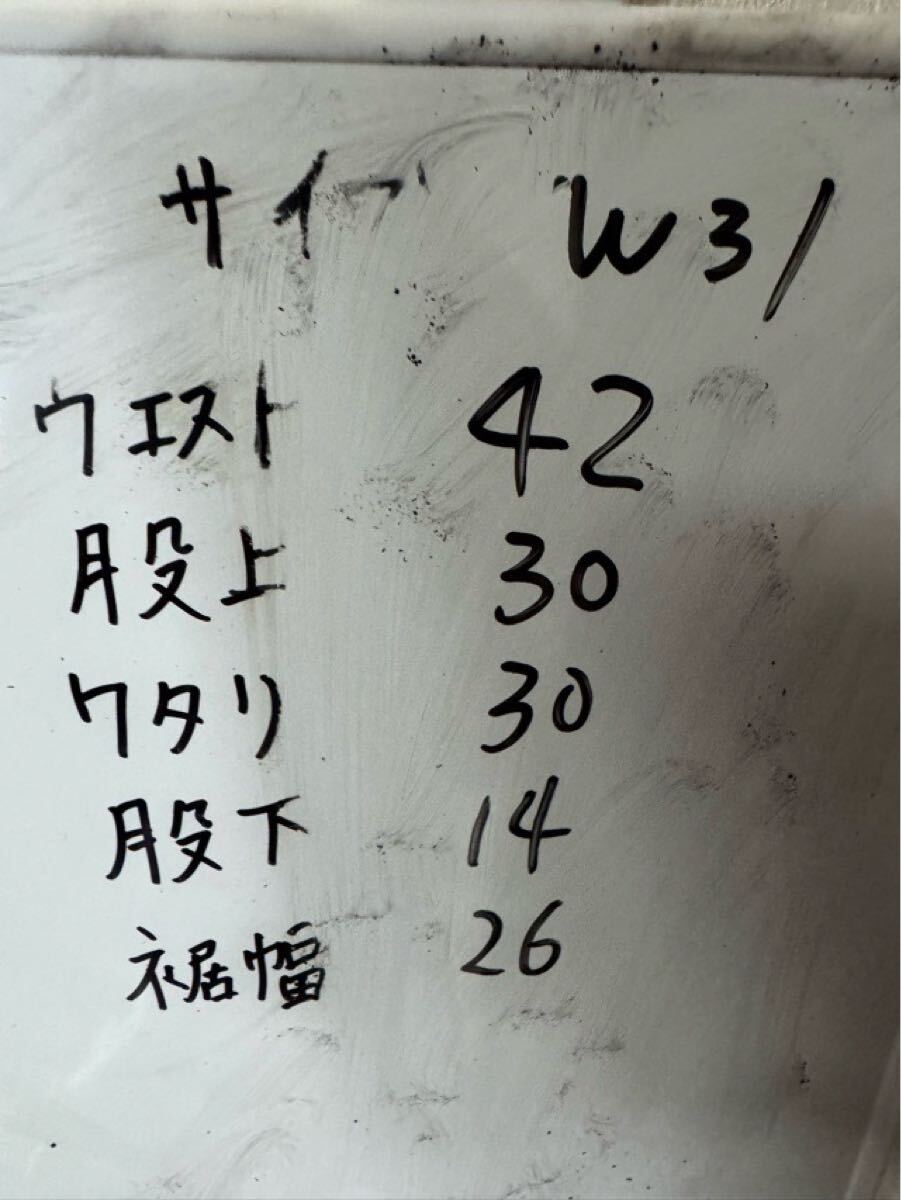 サイズ W31
ウエスト 42
股上 30
ワタリ 30
股下 14
裾幅 26